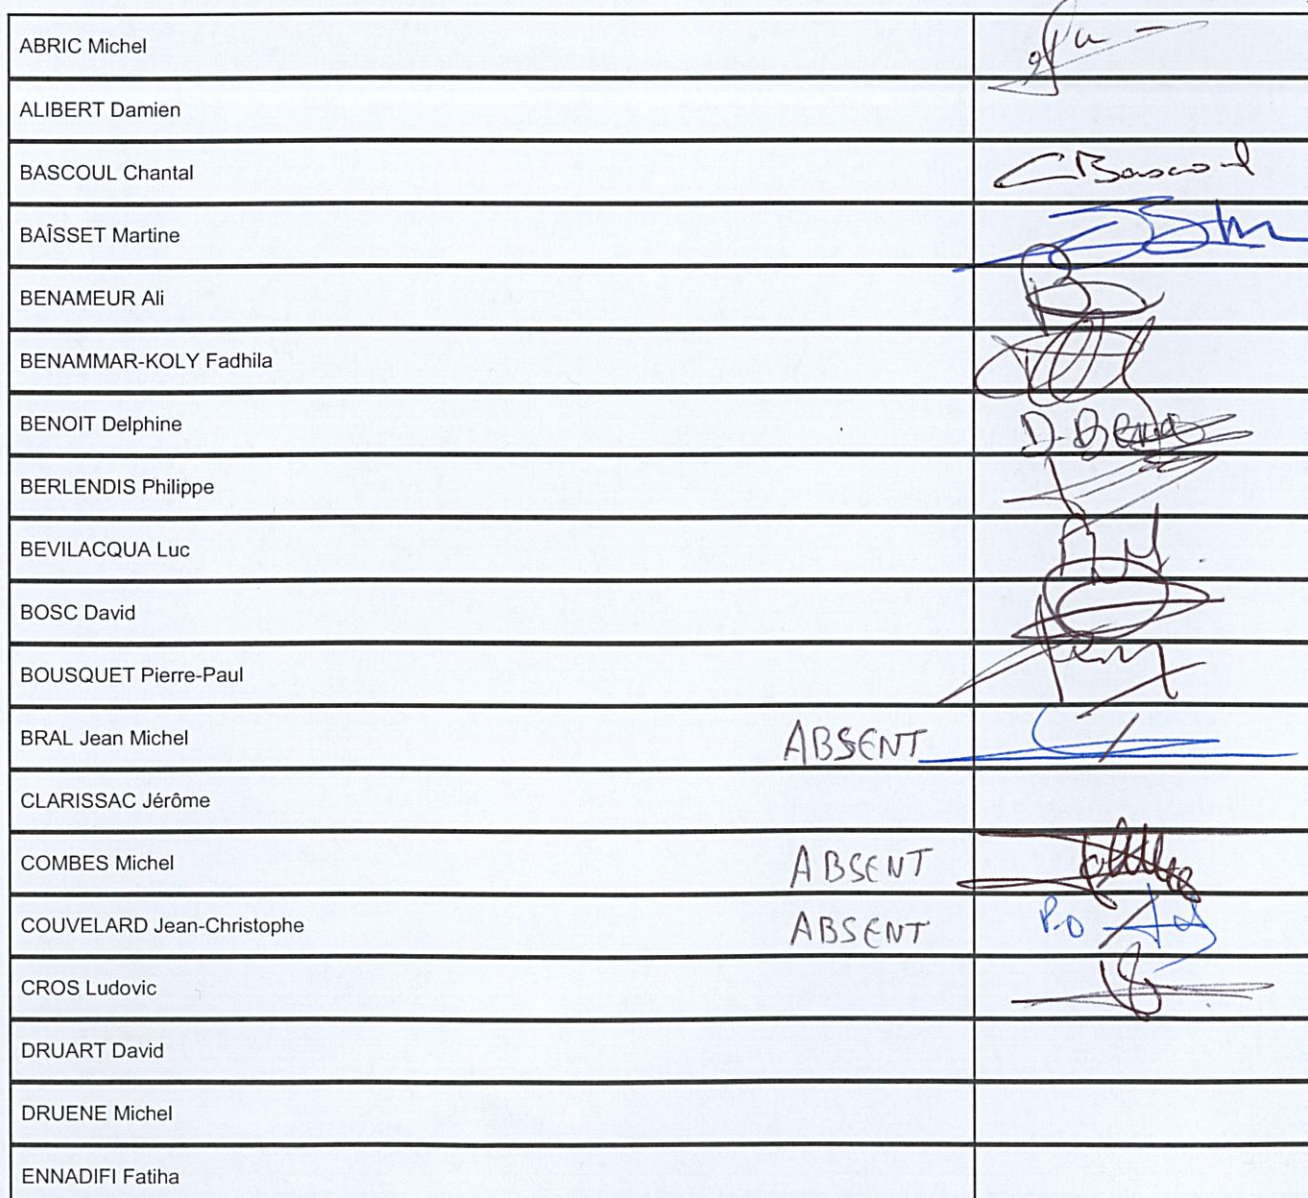 ABRIC Michel
ALIBERT Damien
BASCOUL Chantal CBascoul
BAÎSSET Martine
BENAMEUR Ali
BENAMMAR-KOLY Fadhila
BENOIT Delphine D. Beno
BERLENDIS Philippe
BEVILACQUA Luc
BOSC David
BOUSQUET Pierre-Paul
BRAL Jean Michel ABSENT
CLARISSAC Jérôme
COMBES Michel ABSENT
COUVELARD Jean-Christophe ABSENT P.O
CROS Ludovic
DRUART David
DRUENE Michel
ENNADIFI Fatiha